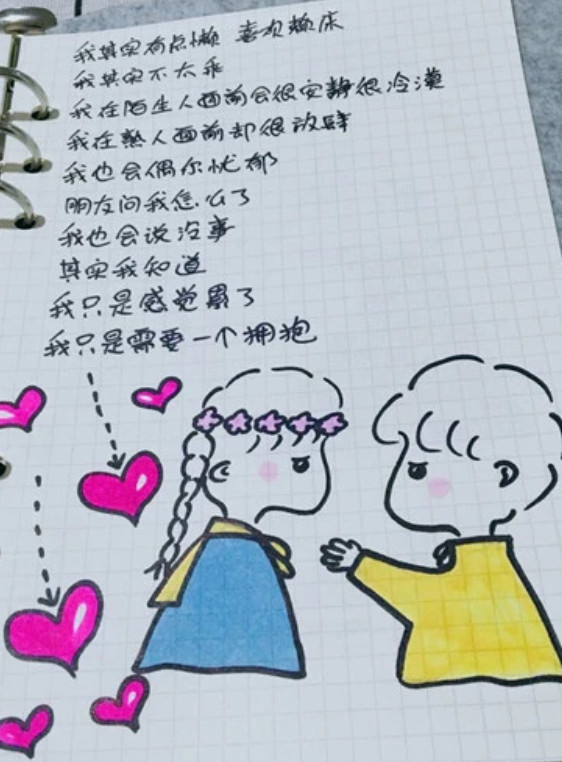 我其实有点懒 喜欢赖床
我其实不太乖
我在陌生人面前会很安静很冷漠
我在熟人面前却很放肆
我也会偶尔忧郁
朋友问我怎么了
我也会说没事
其实我知道
我只是感觉累了
我只是需要一个拥抱